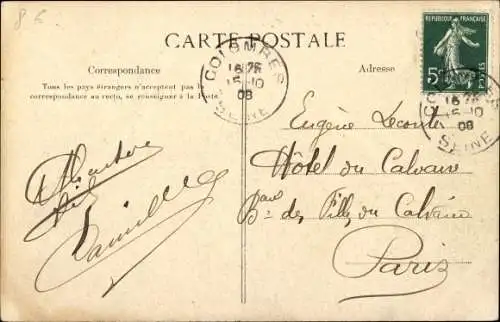 86
CARTE POSTALE
Correspondance
Adresse
Tous les pays étrangers n'acceptent pas la
correspondance au recto, se renseigner à la Poste.
COLOMBES
16 25
15-10
08
SEINE
REPUBLIQUE FRANÇAISE
5c
POSTES
16 25
15-10
08
SEINE
Eugène Lecomte
Hôtel du Calvaire
Bard des Filles du Calvaire
Paris